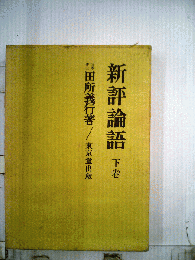 新評論語
下巻
田所義行著
東京堂出版